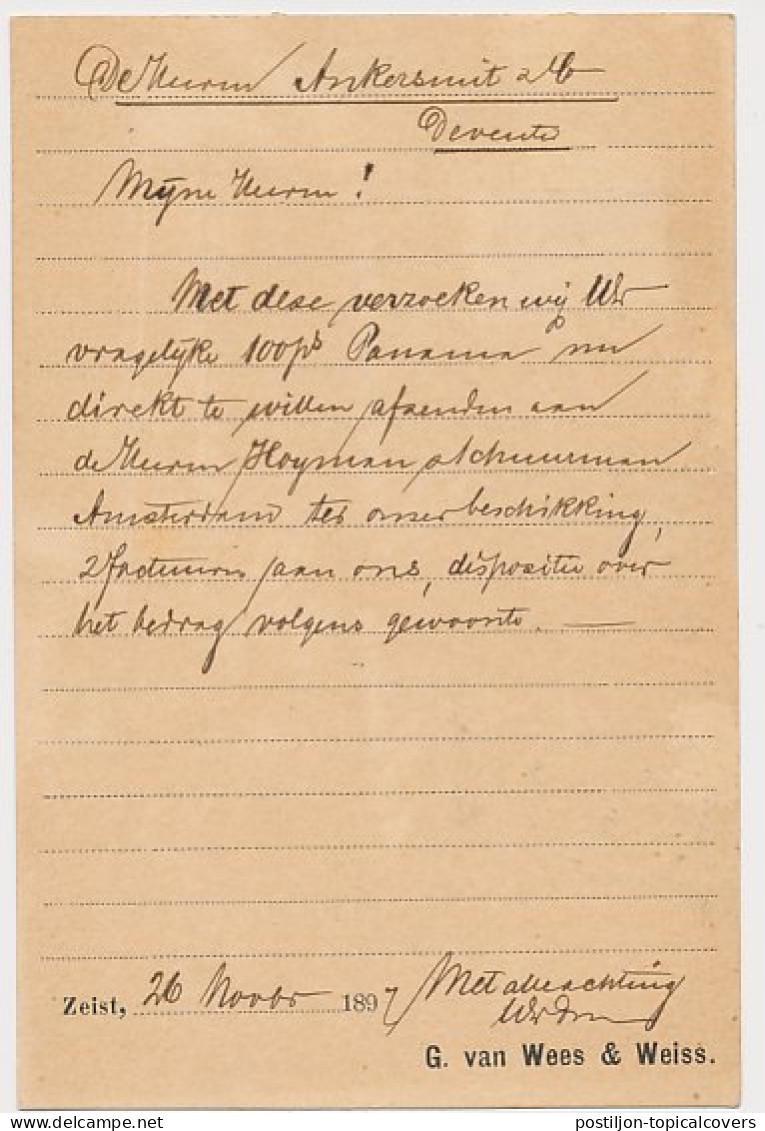 De Heeren Ankersmit & Co
Deventer
Mijne Heeren!
Met deze verzoeken wij UEd
vragelijke 100ps Panama nu
direkt te willen afzenden aan
de Heeren Hoyman & Schuurman
Amsterdam ter onzer beschikking,
2 facturen aan ons, dispositie over
het bedrag volgens gewoonte. —
Zeist, 26 Novbr 1897
Met achting
G. van Wees & Weiss.
postiljon-topicalcovers